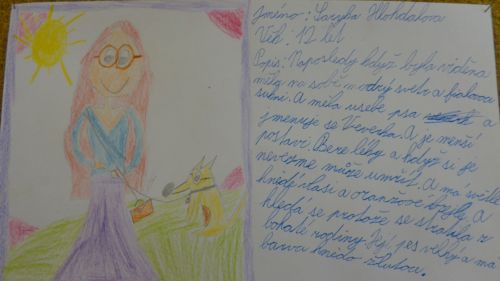 Jméno: Saryka Hlohdalova
Věk: 12 let
Popis: Naposledy když byla viděna
měla na sobě modrý svetr a fialovou
sukni. A měla usebe psa a
jmenuje se Veverka. A je menší
postavi. Bere léky a když si je
nevezme může umřít. A má světle
hnědé vlasi a oranžové brýle. A
hledá se protože se strahla z
bohaté rodiny. Její pes velký a má
barvu hnědo žlutou.